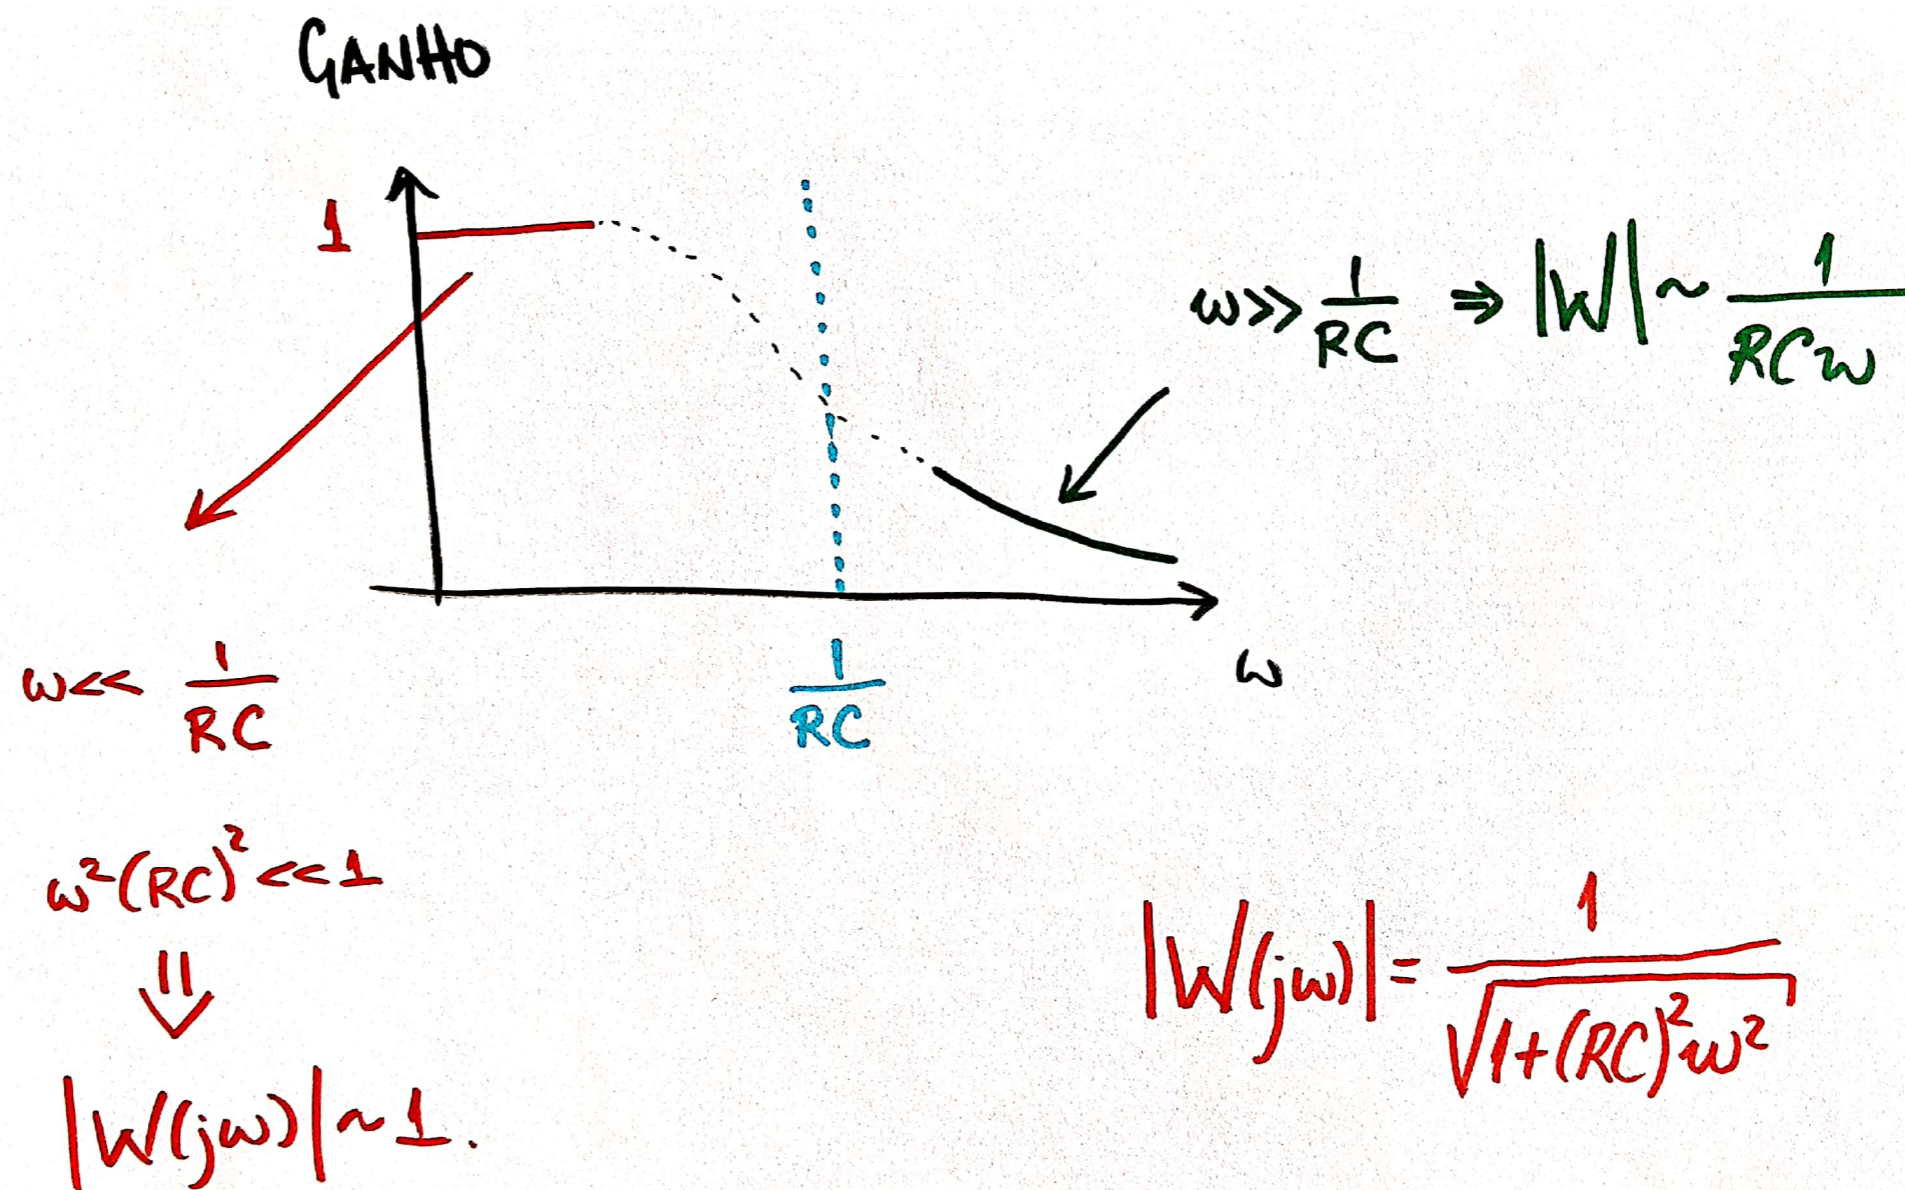 GANHO
1
ω>> 1/RC ⇒ |W| ~ 1/RCω
ω<< 1/RC
1/RC
ω
ω²(RC)²<<1
⇓
|W(jω)| ~ 1.
|W(jω)| = 1/√(1+(RC)²ω²)